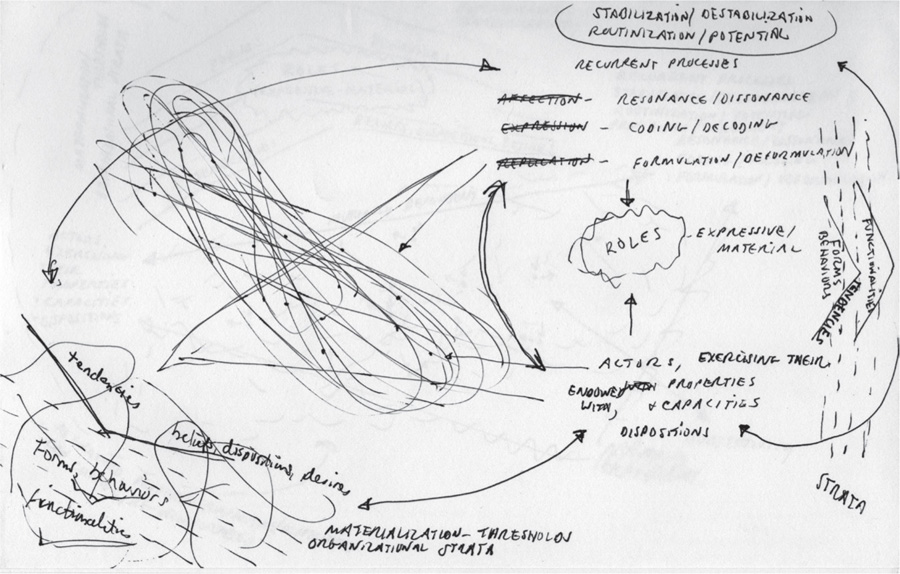 STABILIZATION/DESTABILIZATION
ROUTINIZATION/POTENTIAL
RECURRENT PROCESSES
AFFECTION - RESONANCE/DISSONANCE
EXPRESSION - CODING/DECODING
- FORMULATION/DEFORMULATION
ROLES
- EXPRESSIVE/
MATERIAL
FUNCTIONALITIES
FORMS
BEHAVIORS
TENDENCIES
ACTORS, EXERCISING THEIR
ENDOWED WITH PROPERTIES
WITH, + CAPACITIES
DISPOSITIONS
STRATA
tendencies
beliefs, dispositions, desires
Forms, behaviors
functionalities
MATERIALIZATION - THRESHOLDS
ORGANIZATIONAL STRATA